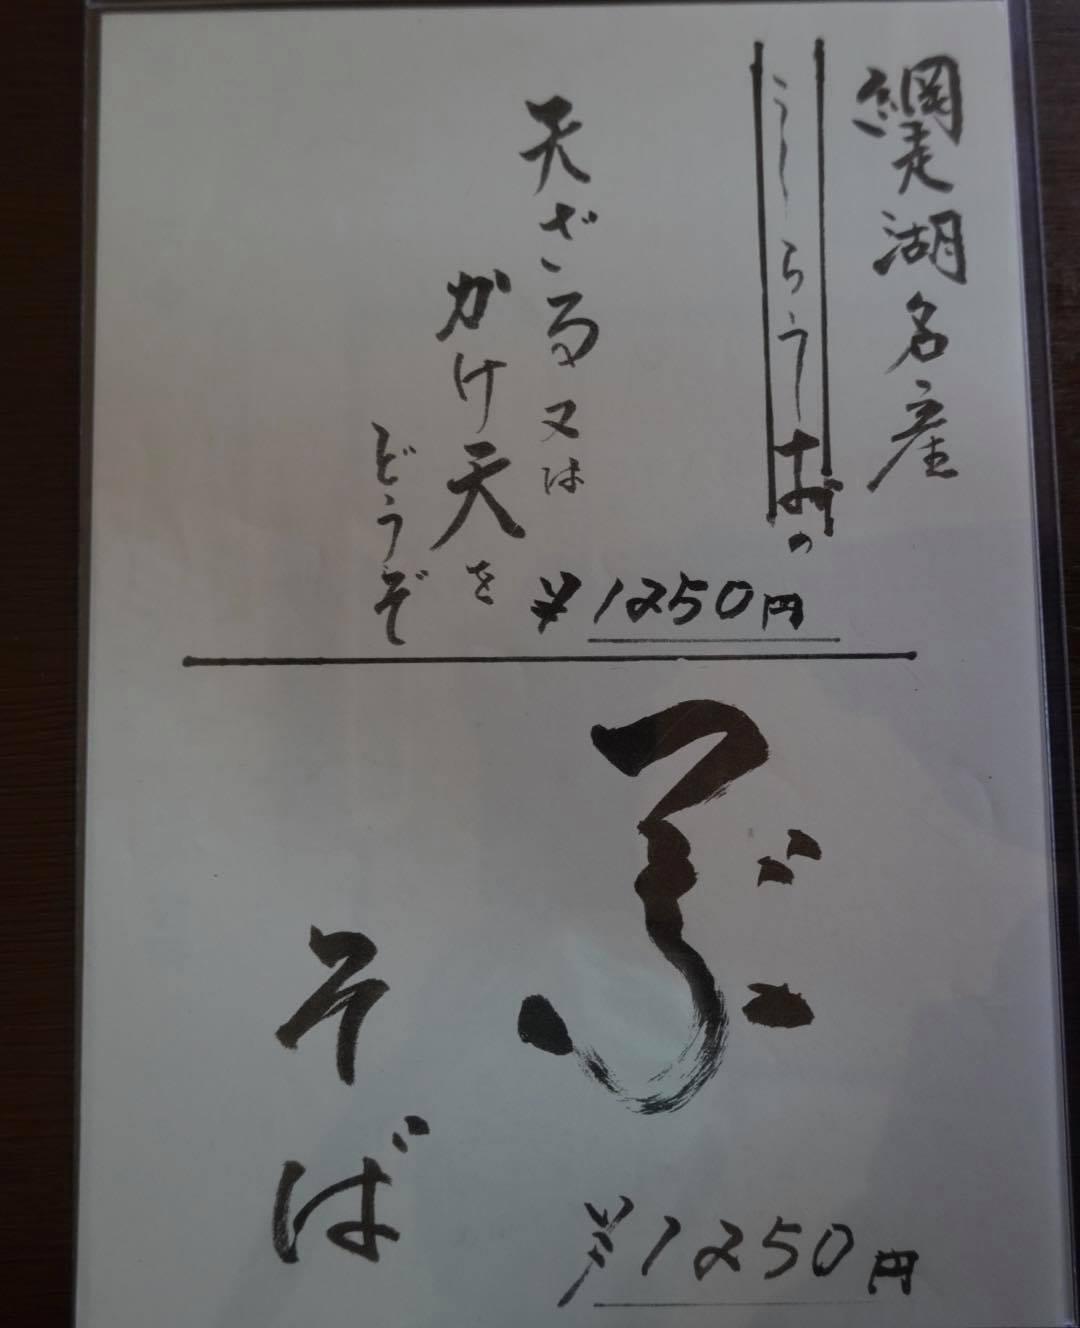 網走湖名産
しらうおの
天ざる又は
かけ天を
どうぞ
¥1250円
ぶ
そば
¥1250円